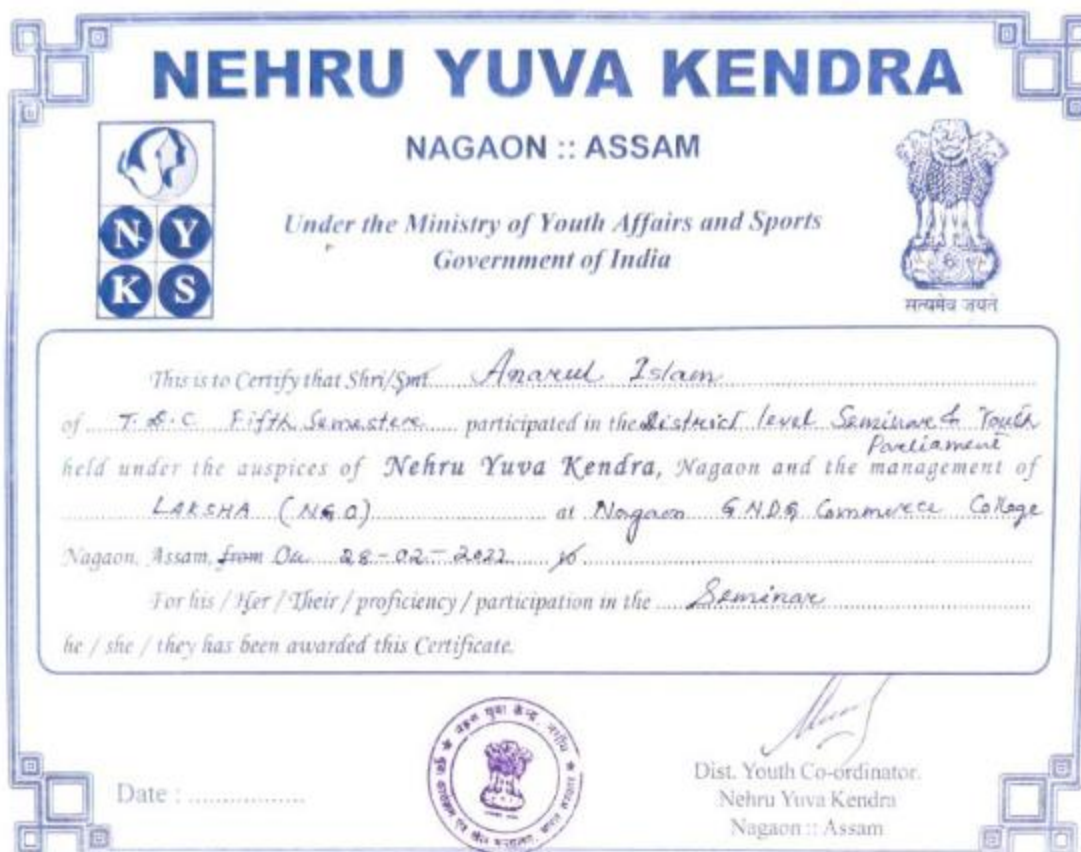 NEHRU YUVA KENDRA
NAGAON :: ASSAM
N Y
K S
Under the Ministry of Youth Affairs and Sports
Government of India
सत्यमेव जयते
This is to Certify that Shri/Smt. Anarul Islam
of T.D.C Fifth Semester participated in the District level Seminar & Youth
Parliament
held under the auspices of Nehru Yuva Kendra, Nagaon and the management of
LAKSHA (NGO) at Nagaon GNDG Commerce College
Nagaon, Assam, from On 28-02-2022 to
For his / Her / Their / proficiency / participation in the Seminar
he / she / they has been awarded this Certificate.
Date : .................
Dist. Youth Co-ordinator.
Nehru Yuva Kendra
Nagaon :: Assam